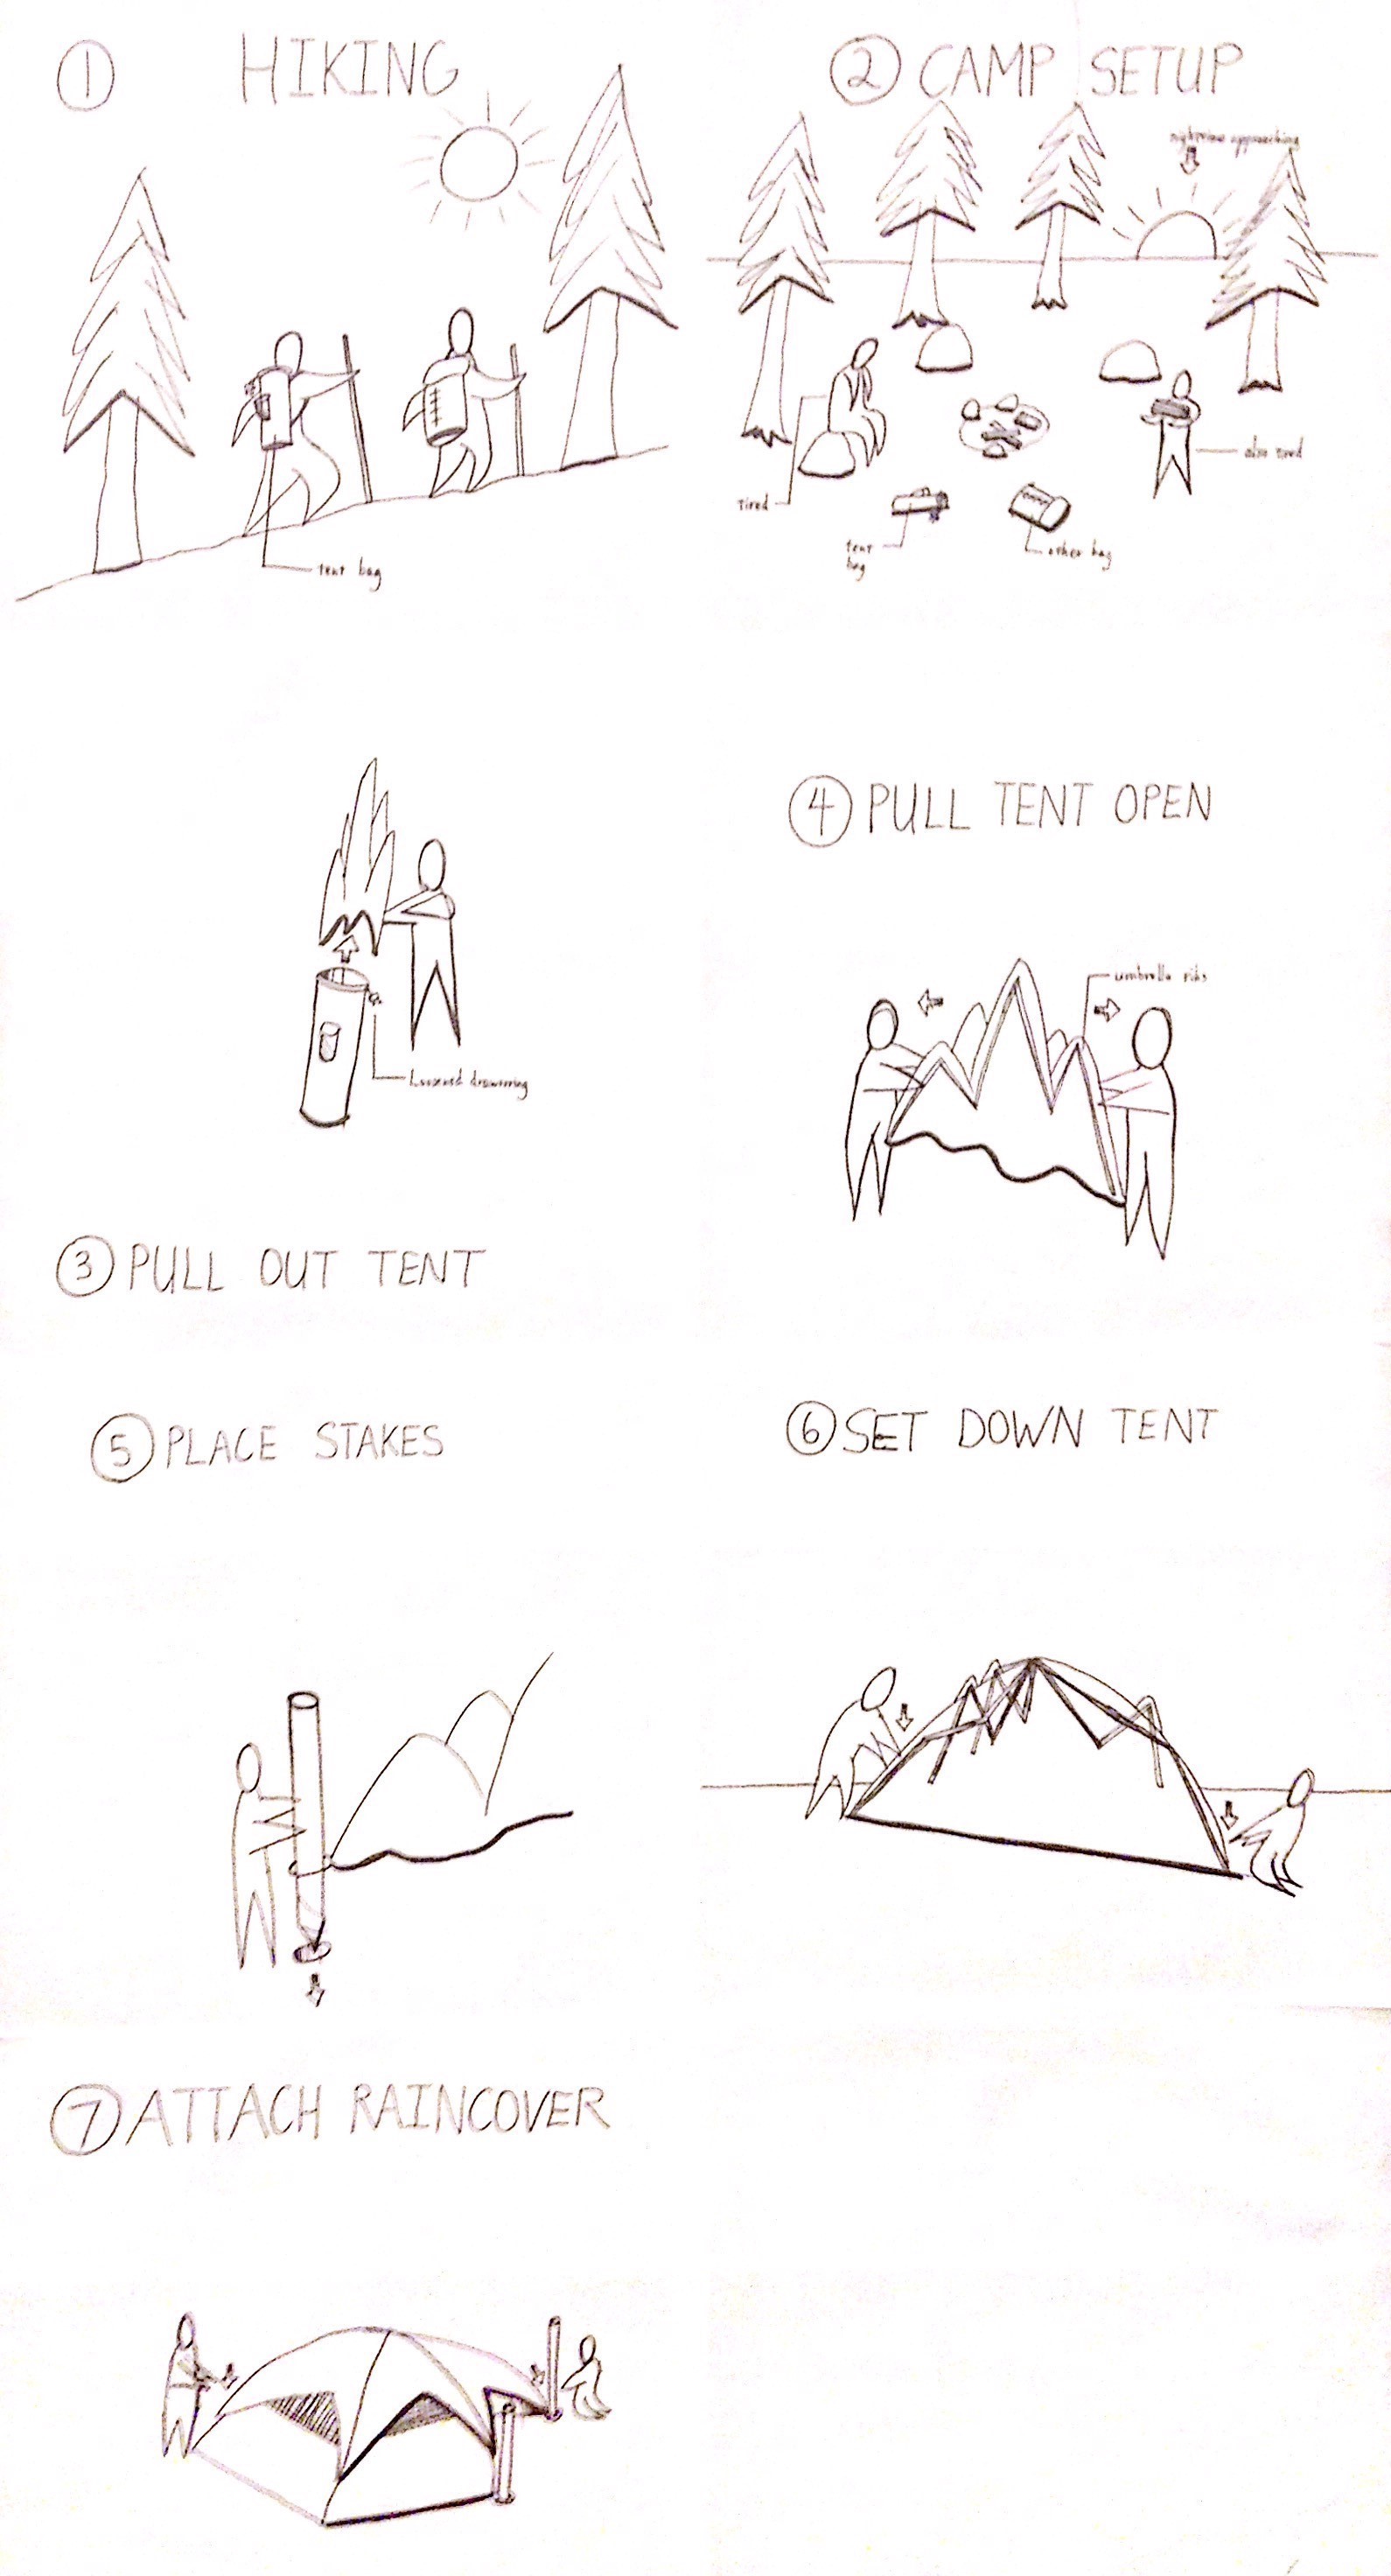 ① HIKING
tent bag
② CAMP SETUP
nighttime approaching
tired
also tired
tent
bag
other bag
Loosened drawstring
③ PULL OUT TENT
④ PULL TENT OPEN
umbrella ribs
⑤ PLACE STAKES
⑥ SET DOWN TENT
⑦ ATTACH RAINCOVER